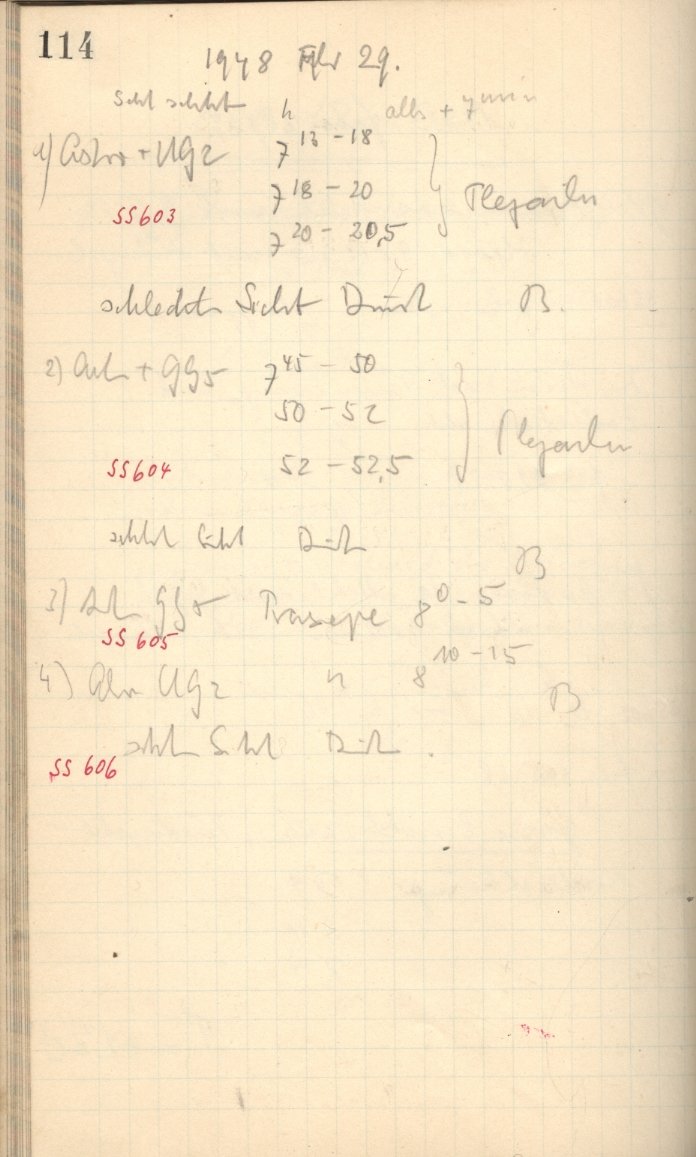 114
1948 Febr 29.
Seht schlecht h alles + 7 min
1) Astro + UG2 7 13 - 18
7 18 - 20 Plejaden
SS603
7 20 - 20,5
schlechte Sicht Dunst B.
2) + GG5 7 45 - 50
50 - 52
Plejaden
SS604 52 - 52,5
Sicht Dunst
B
3) GG5 Praesepe 8 0 - 5
SS 605
4) UG2 " 8 10 - 15
B
Sicht Dunst.
SS 606